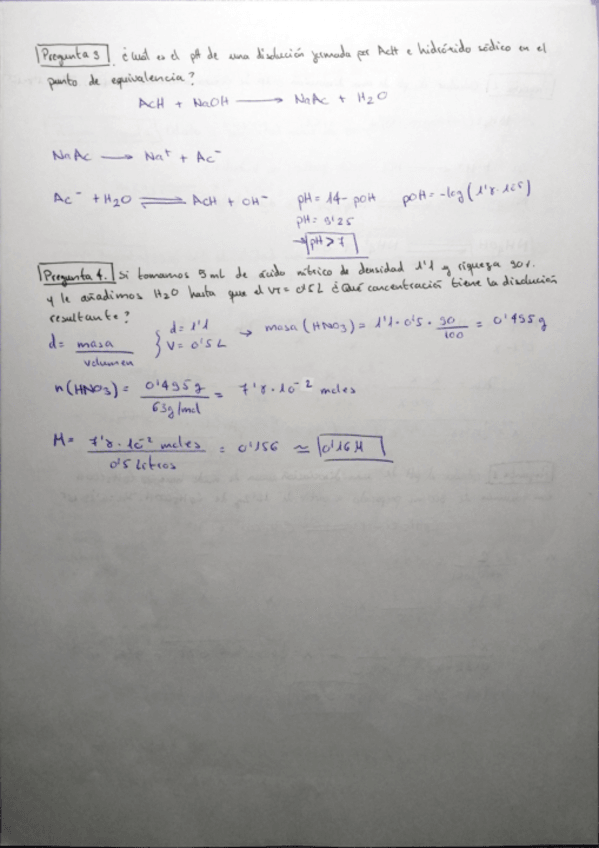 Pregunta 3. ¿Cuál es el pH de una disolución formada por AcH e hidróxido sódico en el
punto de equivalencia?
AcH + NaOH ⟶ NaAc + H2O
NaAc ⟶ Na+ + Ac-
Ac- + H2O ⇌ AcH + OH- pH = 14 - pOH pOH = -log (1'8·10-5)
pH = 9'25
→ pH > 7
Pregunta 4. Si tomamos 5 ml de ácido nítrico de densidad 1'1 y riqueza 90%.
y le añadimos H2O hasta que el VT = 0'5 L ¿Qué concentración tiene la disolución
resultante?
d = masa / volumen { d = 1'1 V = 0'5 L → masa (HNO3) = 1'1 · 0'5 · 90/100 = 0'495 g
n (HNO3) = 0'495 g / 63 g/mol = 7'8 · 10-2 moles
M = 7'8 · 10-2 moles / 0'5 Litros = 0'156 ≃ 0'16 M